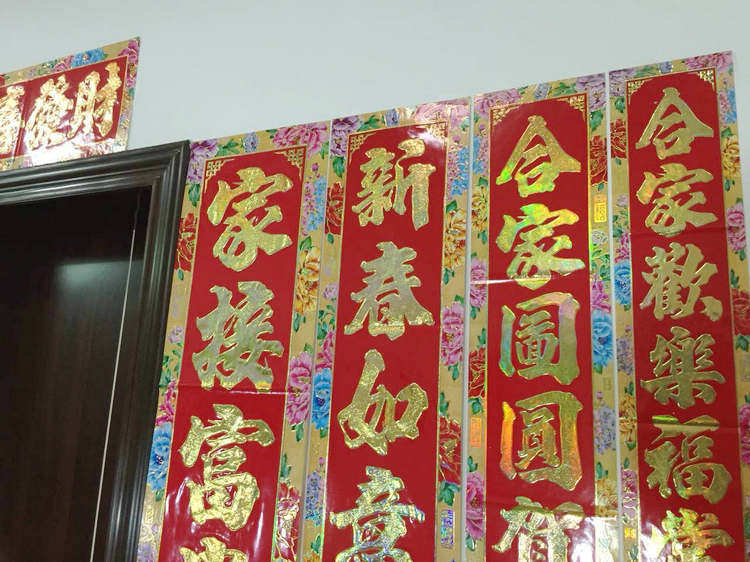 發財
家接富
新春如意
合家圖圓賀
合家歡樂福堂